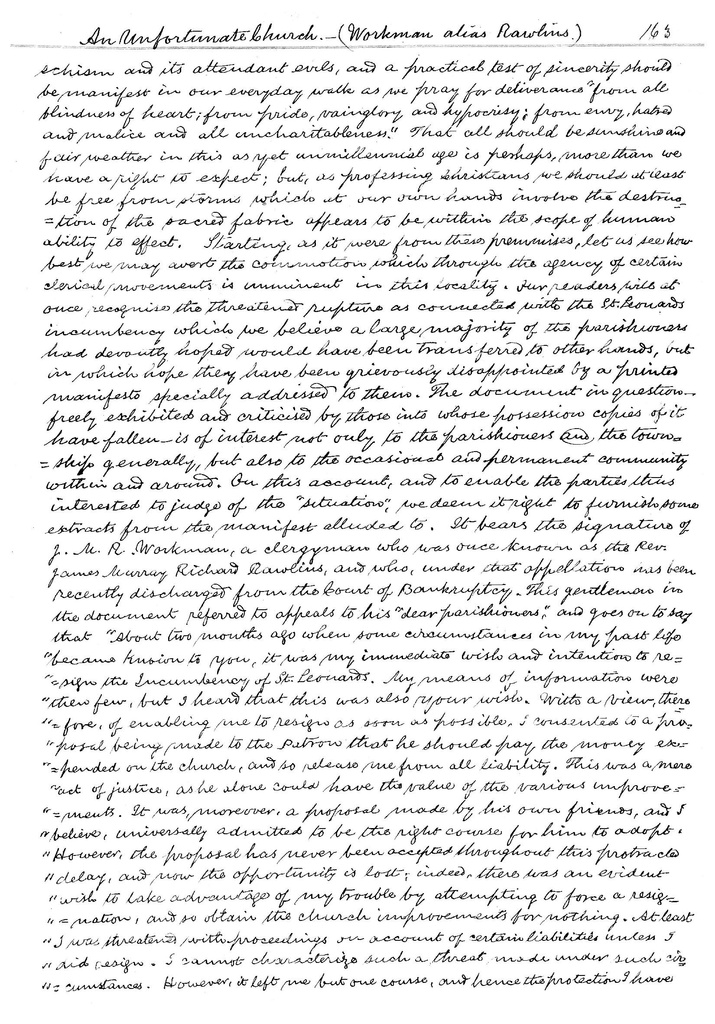 An Unfortunate Church.—(Workman alias Rawlins.) 163
schism and its attendant evils, and a practical test of sincerity should
be manifest in our everyday walk as we pray for deliverance "from all
blindness of heart; from pride, vainglory and hypocrisy; from envy, hatred
and malice and all uncharitableness." That all should be sunshine and
fair weather in this as yet unmillennial age is perhaps, more than we
have a right to expect; but, as professing Christians we should at least
be free from storms which at our own hands involve the destruc=
=tion of the sacred fabric appears to be within the scope of human
ability to effect. Starting, as it were from these premmises, let us see how
best we may avert the commotion which through the agency of certain
clerical movements is imminent in this locality. Our readers will at
once recognise the threatened rupture as connected with the St. Leonards
incumbency which we believe a large majority of the parishioners
had devoutly hoped would have been transferred to other hands, but
in which hope they have been grievously disappointed by a printed
manifesto specially addressed to them. The document in question—
freely exhibited and criticised by those into whose possession copies of it
have fallen—is of interest not only to the parishioners and the town=
=ship generally, but also to the occasional and permanent community
within and around. On this account, and to enable the parties thus
interested to judge of the "situation", we deem it right to furnish some
extracts from the manifest alluded to. It bears the signature of
J. M. R. Workman, a clergyman who was once known as the Rev.
James Murray Richard Rawlins, and who, under that appellation has been
recently discharged from the Court of Bankruptcy. This gentleman in
the document referred to appeals to his "dear parishioners", and goes on to say
that "About two months ago when some circumstances in my past life
"became known to you, it was my immediate wish and intention to re=
"=sign the Incumbency of St. Leonards. My means of information were
"then few, but I heard that this was also your wish. With a view, there
"=fore, of enabling me to resign as soon as possible, I consented to a pro=
"posal being made to the Patron that he should pay the money ex=
"=pended on the church, and so release me from all liability. This was a mere
"act of justice, as he alone could have the value of the various improve=
"=ments. It was, moreover, a proposal made by his own friends, and I
"believe, universally admitted to be the right course for him to adopt.
"However, the proposal has never been accepted throughout this protracted
"delay, and now the opportunity is lost; indeed, there was an evident
"wish to take advantage of my trouble by attempting to force a resig=
"=nation, and so obtain the church improvements for nothing. At least
"I was threatened with proceedings on account of certain liabilities unless I
"did resign. I cannot characterize such a threat made under such cir=
"=cumstances. However, it left me but one course, and hence the protection I have